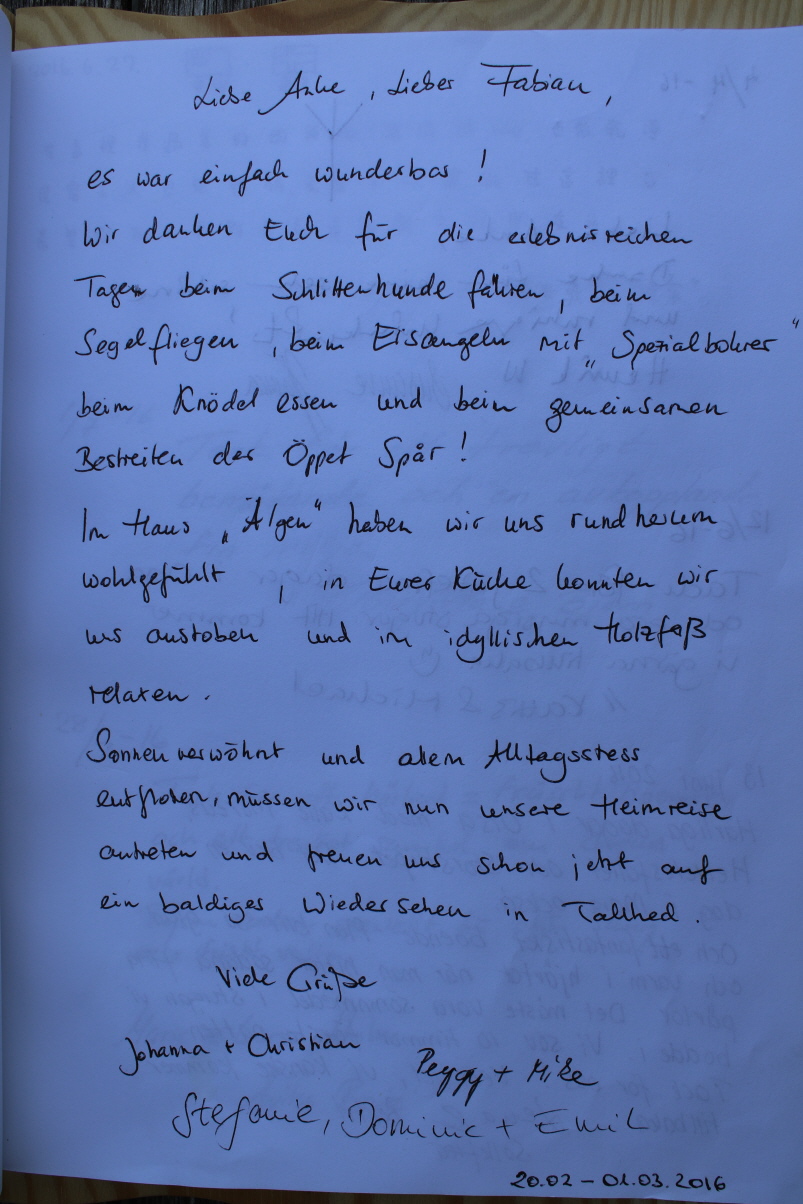 Liebe Anke, Lieber Fabian,
es war einfach wunderbar!
Wir danken Euch für die erlebnisreichen
Tagen beim Schlittenhunde fahren, beim
Segelfliegen, beim Eisangeln mit „Spezialbohrer“
beim Knödel essen und beim gemeinsamen
Bestreiten des Öppet Spår!
Im Haus „Älgen“ haben wir uns rundherum
wohlgefühlt, in Eurer Küche konnten wir
uns austoben und im idyllischen Holzfaß
relaxen.
Sonnenverwöhnt und allem Alltagsstress
entflohen, müssen wir nun unsere Heimreise
antreten und freuen uns schon jetzt auf
ein baldiges Wiedersehen in Tallhed.
Viele Grüße
Johanna + Christian
Peggy + Mike
Stefanie, Dominic + Emil
20.02 – 01.03.2016